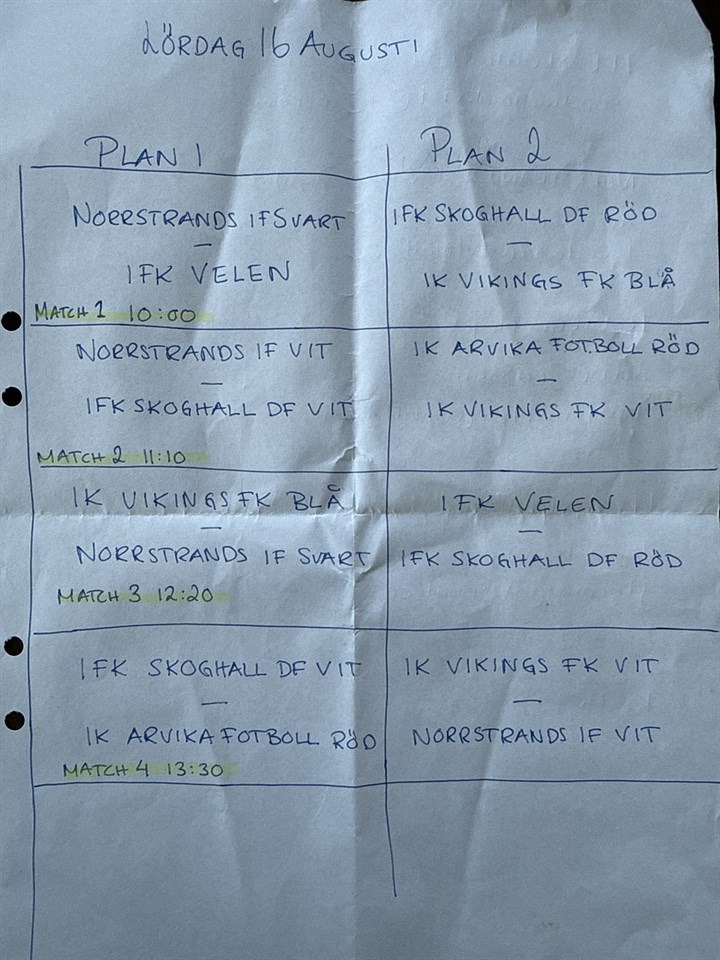 LÖRDAG 16 AUGUSTI
PLAN 1
PLAN 2
NORRSTRANDS IF SVART
—
IFK VELEN
MATCH 1 10:00
IFK SKOGHALL DF RÖD
—
IK VIKINGS FK BLÅ
NORRSTRANDS IF VIT
—
IFK SKOGHALL DF VIT
MATCH 2 11:10
IK ARVIKA FOTBOLL RÖD
—
IK VIKINGS FK VIT
IK VIKINGS FK BLÅ
—
NORRSTRANDS IF SVART
MATCH 3 12:20
IFK VELEN
—
IFK SKOGHALL DF RÖD
IFK SKOGHALL DF VIT
—
IK ARVIKA FOTBOLL RÖD
MATCH 4 13:30
IK VIKINGS FK VIT
—
NORRSTRANDS IF VIT